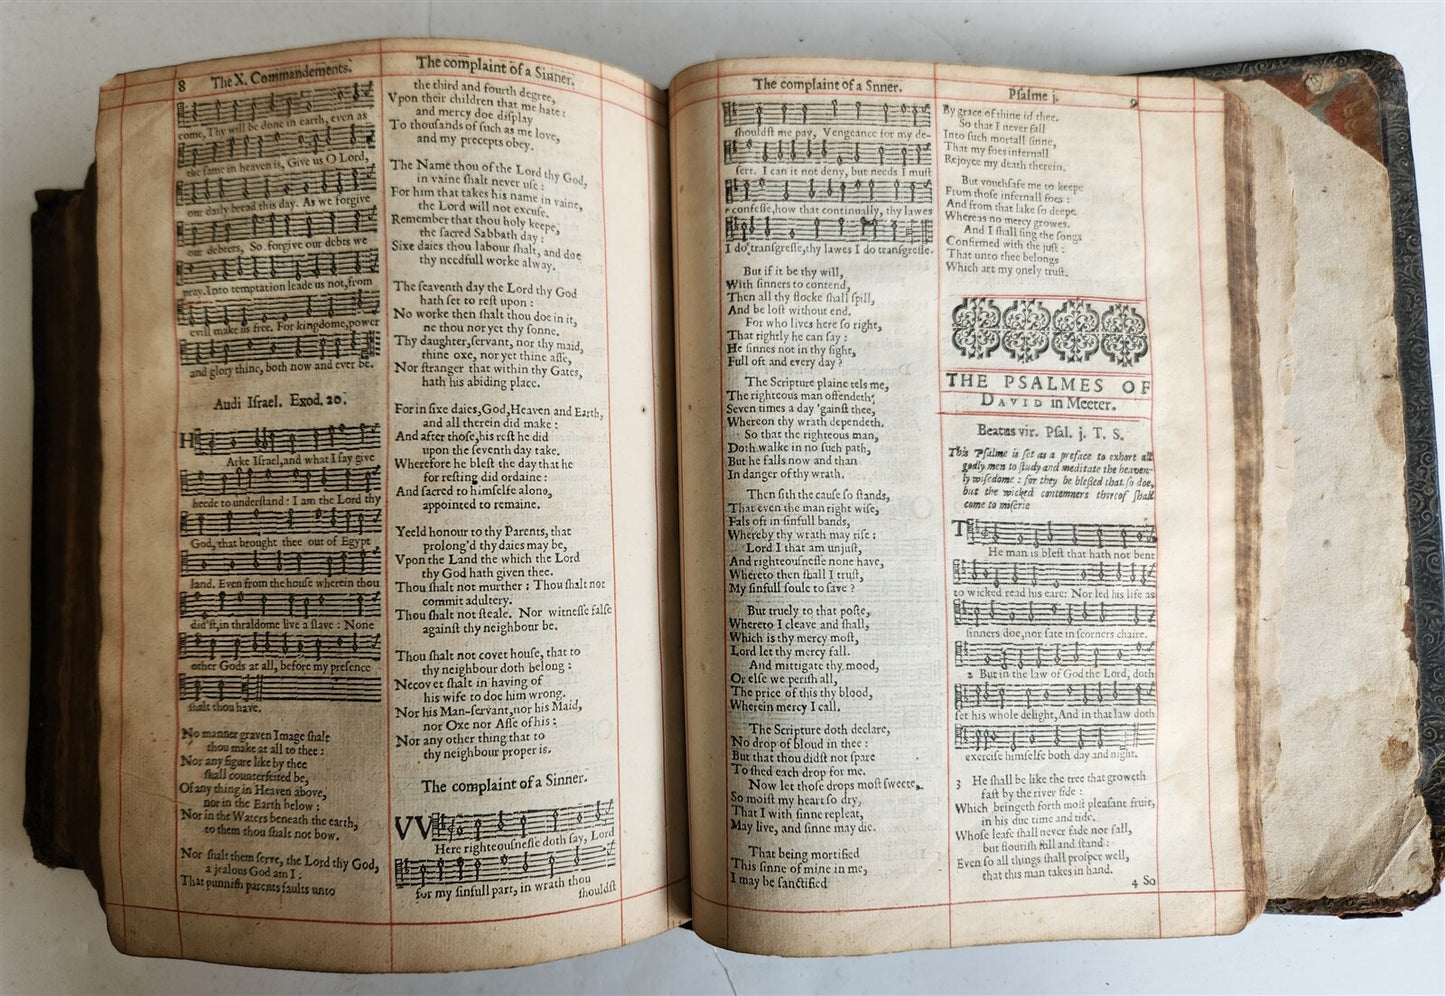 8 The X. Commandements.
come, Thy will be done in earth, even as
the same in heaven is, Give us O Lord,
our daily bread this day. As we forgive
our debters, So forgive our debts we
pray. Into temptation leade us not, from
evill make us free. For kingdome, power
and glory thine, both now and ever be.
Audi Israel. Exod. 20.
H
Arke Israel, and what I say give
heede to understand: I am the Lord thy
God, that brought thee out of Egypt
land. Even from the house wherein thou
did'st, in thraldome live a slave: None
other Gods at all, before my presence
shalt thou have.
No manner graven Image shalt
thou make at all to thee:
Nor any figure like by thee
shall counterfeited be,
Of any thing in Heaven above,
nor in the Earth below:
Nor in the Waters beneath the earth,
to them thou shalt not bow.
Nor shalt them serve, the Lord thy God,
a jealous God am I:
That punnish parents faults unto
The complaint of a Sinner.
the third and fourth degree,
Vpon their children that me hate:
and mercy doe display
To thousands of such as me love,
and my precepts obey.
The Name thou of the Lord thy God,
in vaine shalt never use:
For him that takes his name in vaine,
the Lord will not excuse.
Remember that thou holy keepe,
the sacred Sabbath day:
Sixe daies thou labour shalt, and doe
thy needfull worke alway.
The seaventh day the Lord thy God
hath set to rest upon:
No worke then shalt thou doe in it,
ne thou nor yet thy sonne.
Thy daughter, servant, nor thy maid,
thine oxe, nor yet thine asse,
Nor stranger that within thy Gates,
hath his abiding place.
For in sixe daies, God, Heaven and Earth,
and all therein did make:
And after those, his rest he did
upon the seventh day take.
Wherefore he blest the day that he
for resting did ordaine:
And sacred to himselfe alone,
appointed to remaine.
Yeeld honour to thy Parents, that
prolong'd thy daies may be,
Vpon the Land the which the Lord
thy God hath given thee.
Thou shalt not murther: Thou shalt not
commit adultery.
Thou shalt not steale. Nor witnesse false
against thy neighbour be.
Thou shalt not covet house, that to
thy neighbour doth belong:
Ne covet shalt in having of
his wife to doe him wrong.
Nor his Man-servant, nor his Maid,
nor Oxe nor Asse of his:
Nor any other thing that to
thy neighbour proper is.
The complaint of a Sinner.
VV
Here righteousnesse doth say, Lord
for my sinfull part, in wrath thou
shouldst
The complaint of a Snner.
shouldst me pay, Vengeance for my de-
sert. I can it not deny, but needs I must
confesse, how that continually, thy lawes
I do transgresse, thy lawes I do transgresse.
But if it be thy will,
With sinners to contend,
Then all thy flocke shall spill,
And be lost without end.
For who lives here so right,
That rightly he can say:
He sinnes not in thy sight,
Full oft and every day?
The Scripture plaine tels me,
The righteous man offendeth,
Seven times a day 'gainst thee,
Whereon thy wrath dependeth.
So that the righteous man,
Doth walke in no such path,
But he falls now and than
In danger of thy wrath.
Then sith the cause so stands,
That even the man right wise,
Fals oft in sinfull bands,
Whereby thy wrath may rise:
Lord I that am unjust,
And righteousnesse none have,
Whereto then shall I trust,
My sinfull soule to save?
But truely to that poste,
Whereto I cleave and shall,
Which is thy mercy most,
Lord let thy mercy fall.
And mittigate thy mood,
Or else we perish all,
The price of this thy blood,
Wherein mercy I call.
The Scripture doth declare,
No drop of bloud in thee:
But that thou didst not spare
To shed each drop for me.
Now let those drops most sweete,
So moist my heart so dry,
That I with sinne repleat,
May live, and sinne may die.
That being mortified
This sinne of mine in me,
I may be sanctified
Psalme j. 9
By grace of thine id thee.
So that I never fall
Into such mortall sinne,
That my foes infernall
Rejoyce my death therein.
But vouchsafe me to keepe
From those infernall foes:
And from that lake so deepe
Whereas no mercy growes.
And I shall sing the songs
Confirmed with the just:
That unto thee belongs
Which art my onely trust.
THE PSALMES OF
DAVID in Meeter.
Beatus vir. Psal. j. T. S.
This Psalme is set as a preface to exhort all
godly men to study and meditate the heaven-
ly wisedome: for they be blessed that so doe,
but the wicked contemners thereof shall
come to miserie
T
He man is blest that hath not bent
to wicked read his eare: Nor led his life as
sinners doe, nor sate in scorners chaire.
2 But in the law of God the Lord, doth
set his whole delight, And in that law doth
exercise himselfe both day and night.
3 He shall be like the tree that groweth
fast by the river side:
Which bringeth forth most pleasant fruit,
in his due time and tide.
Whose leafe shall never fade nor fall,
but flourish still and stand:
Even so all things shall prosper well,
that this man takes in hand.
4 So